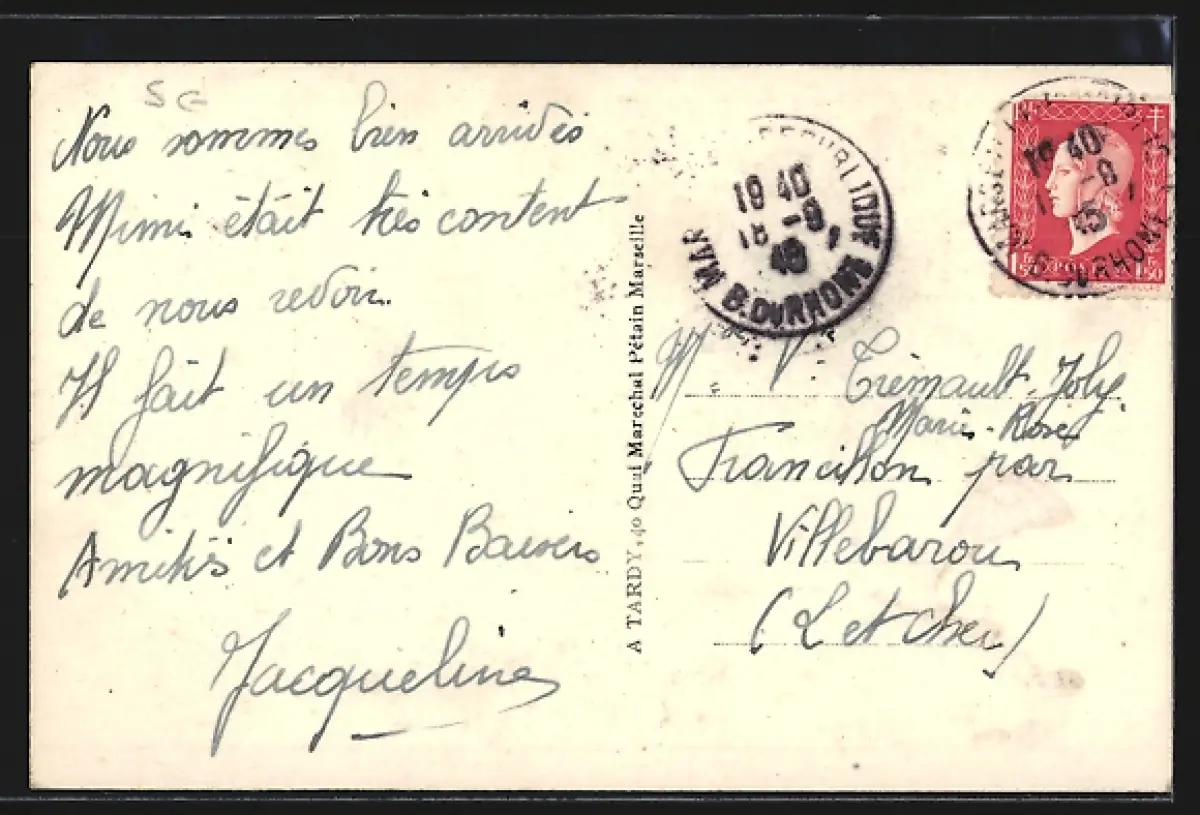 SG
Nous sommes bien arrivés
Mimi était très content
de nous revoir.
Il fait un temps
magnifique
Amitiés et Bons Baisers
Jacqueline
A TARDY, 40 Quai Marechal Pétain Marseille
REPUBLIQUE
19 40
18 -8
45
MAR B. DU RHONE
19 40
-8
45
RHONE
1F50 1F50
M V Trémault-Joly
Marie-Rose
Francillon par
Villebarou
(L et Cher)